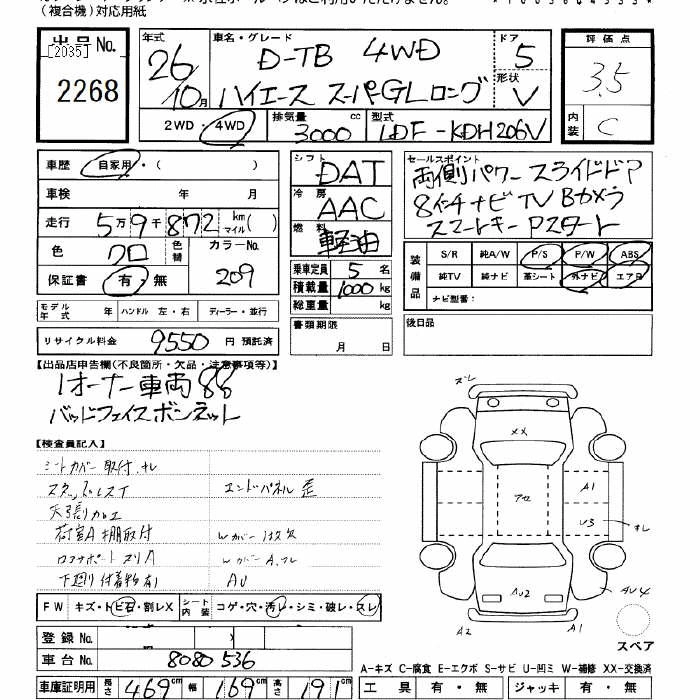 (複合機)対応用紙
出品No.
[2035]
2268
年式
26
10月
車名・グレード
D-TB 4WD
ハイエース スーパーGLロング
ドア
5
形状
V
評価点
3.5
内装
C
2WD・4WD
排気量
3000 cc
型式
LDF-KDH206V
車歴 自家用・( )
車検 年 月
走行 5万9千872 km マイル( )
色 クロ 色替 カラーNo.
保証書 有・無 209
シフト DAT
冷房 AAC
燃料 軽油
乗車定員 5 名
積載量 1000 kg
総重量 kg
書類期限
月 日
セールスポイント
両側パワースライドドア
8インチナビ TV Bカメラ
スマートキー Pスタート
装備品
S/R 純A/W P/S P/W ABS
純TV 純ナビ 革シート 外ナビ エアB
ナビ型番:
後日品
モデル年式 年 ハンドル 左・右 ディーラー・並行
リサイクル料金 9550 円 預託済
【出品店申告欄(不良箇所・欠品・注意事項等)】
1オーナー車両 88
バッドフェイスボンネット
【検査員記入】
シートカバー取付、オレ
エンドパネル歪
天張加工
荷室A棚取付
下廻り付着物有り AU
FW キズ・トビ石・割レX シート内装 コゲ・穴・汚レ・シミ・破レ・スレ
登録No.
車台No. 8080536
車庫証明用 長さ 469cm 幅 169cm 高さ 191cm
ズレ
XX
アセ
A1
U3
オレ
AU2
AU4
A2
A1
スペア
A-キズ C-腐食 E-エクボ S-サビ U-凹ミ W-補修 XX-交換済
工具 有・無 ジャッキ 有・無